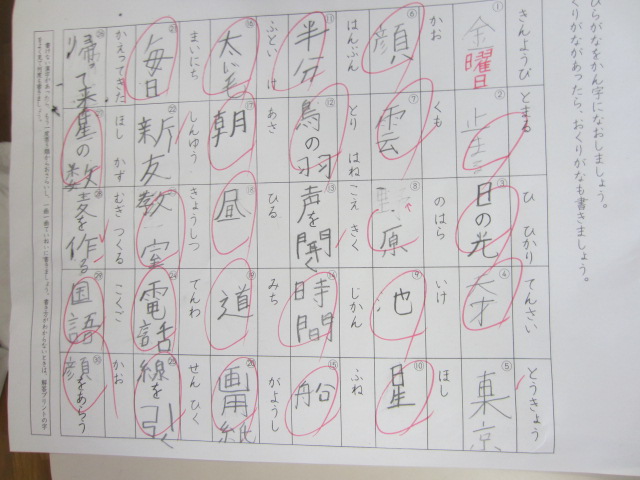 ひらがなをかん字になおしましょう。
くりがながあったら、おくりがなも書きましょう。
① きんようび 金曜日
② とまる 止まる
③ ひ ひかり 日の光
④ てんさい 天才
⑤ とうきょう 東京
⑥ かお 顔
⑦ くも 雲
⑧ のはら 野原
⑨ いけ 池
⑩ ほし 星
⑪ はんぶん 半分
⑫ とり はね 鳥の羽
⑬ こえ きく 声を聞く
⑭ じかん 時間
⑮ ふね 船
⑯ ふとい け 太い毛
⑰ あさ 朝
⑱ ひる 昼
⑲ みち 道
⑳ がようし 画用紙
㉑ まいにち 毎日
㉒ しんゆう 新友
㉓ きょうしつ 教室
㉔ でんわ 電話
㉕ せん ひく 線を引く
㉖ かえってきた 帰って来
㉗ ほし かず 星の数
㉘ むぎ つくる 麦を作る
㉙ こくご 国語
㉚ かお 顔をあらう